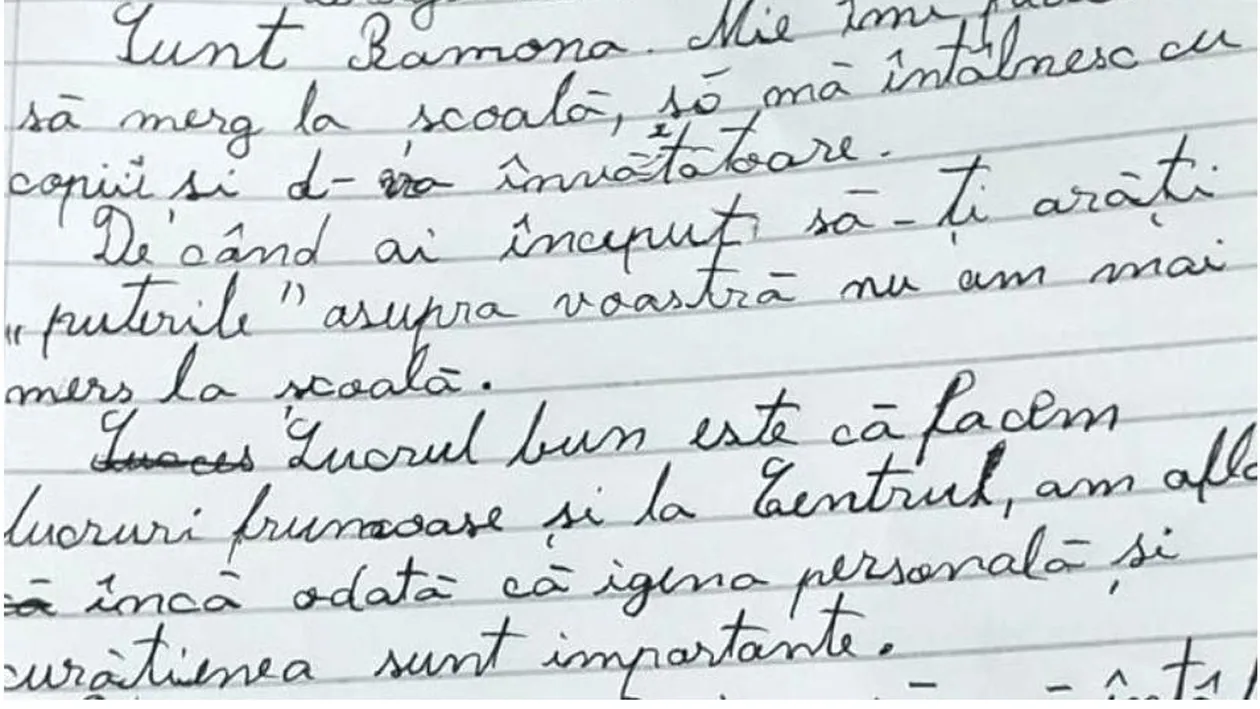 Sunt Ramona. Mie îmi
să merg la școală, să mă întâlnesc cu
copiii și d-ra învățătoare.
De când ai început să-ți arăți
„puterile" asupra voastră nu am mai
mers la școală.
Lucrul bun este că facem
lucruri frumoase și la Centrul, am afla
încă odată că igena personală și
curățienea sunt importante.